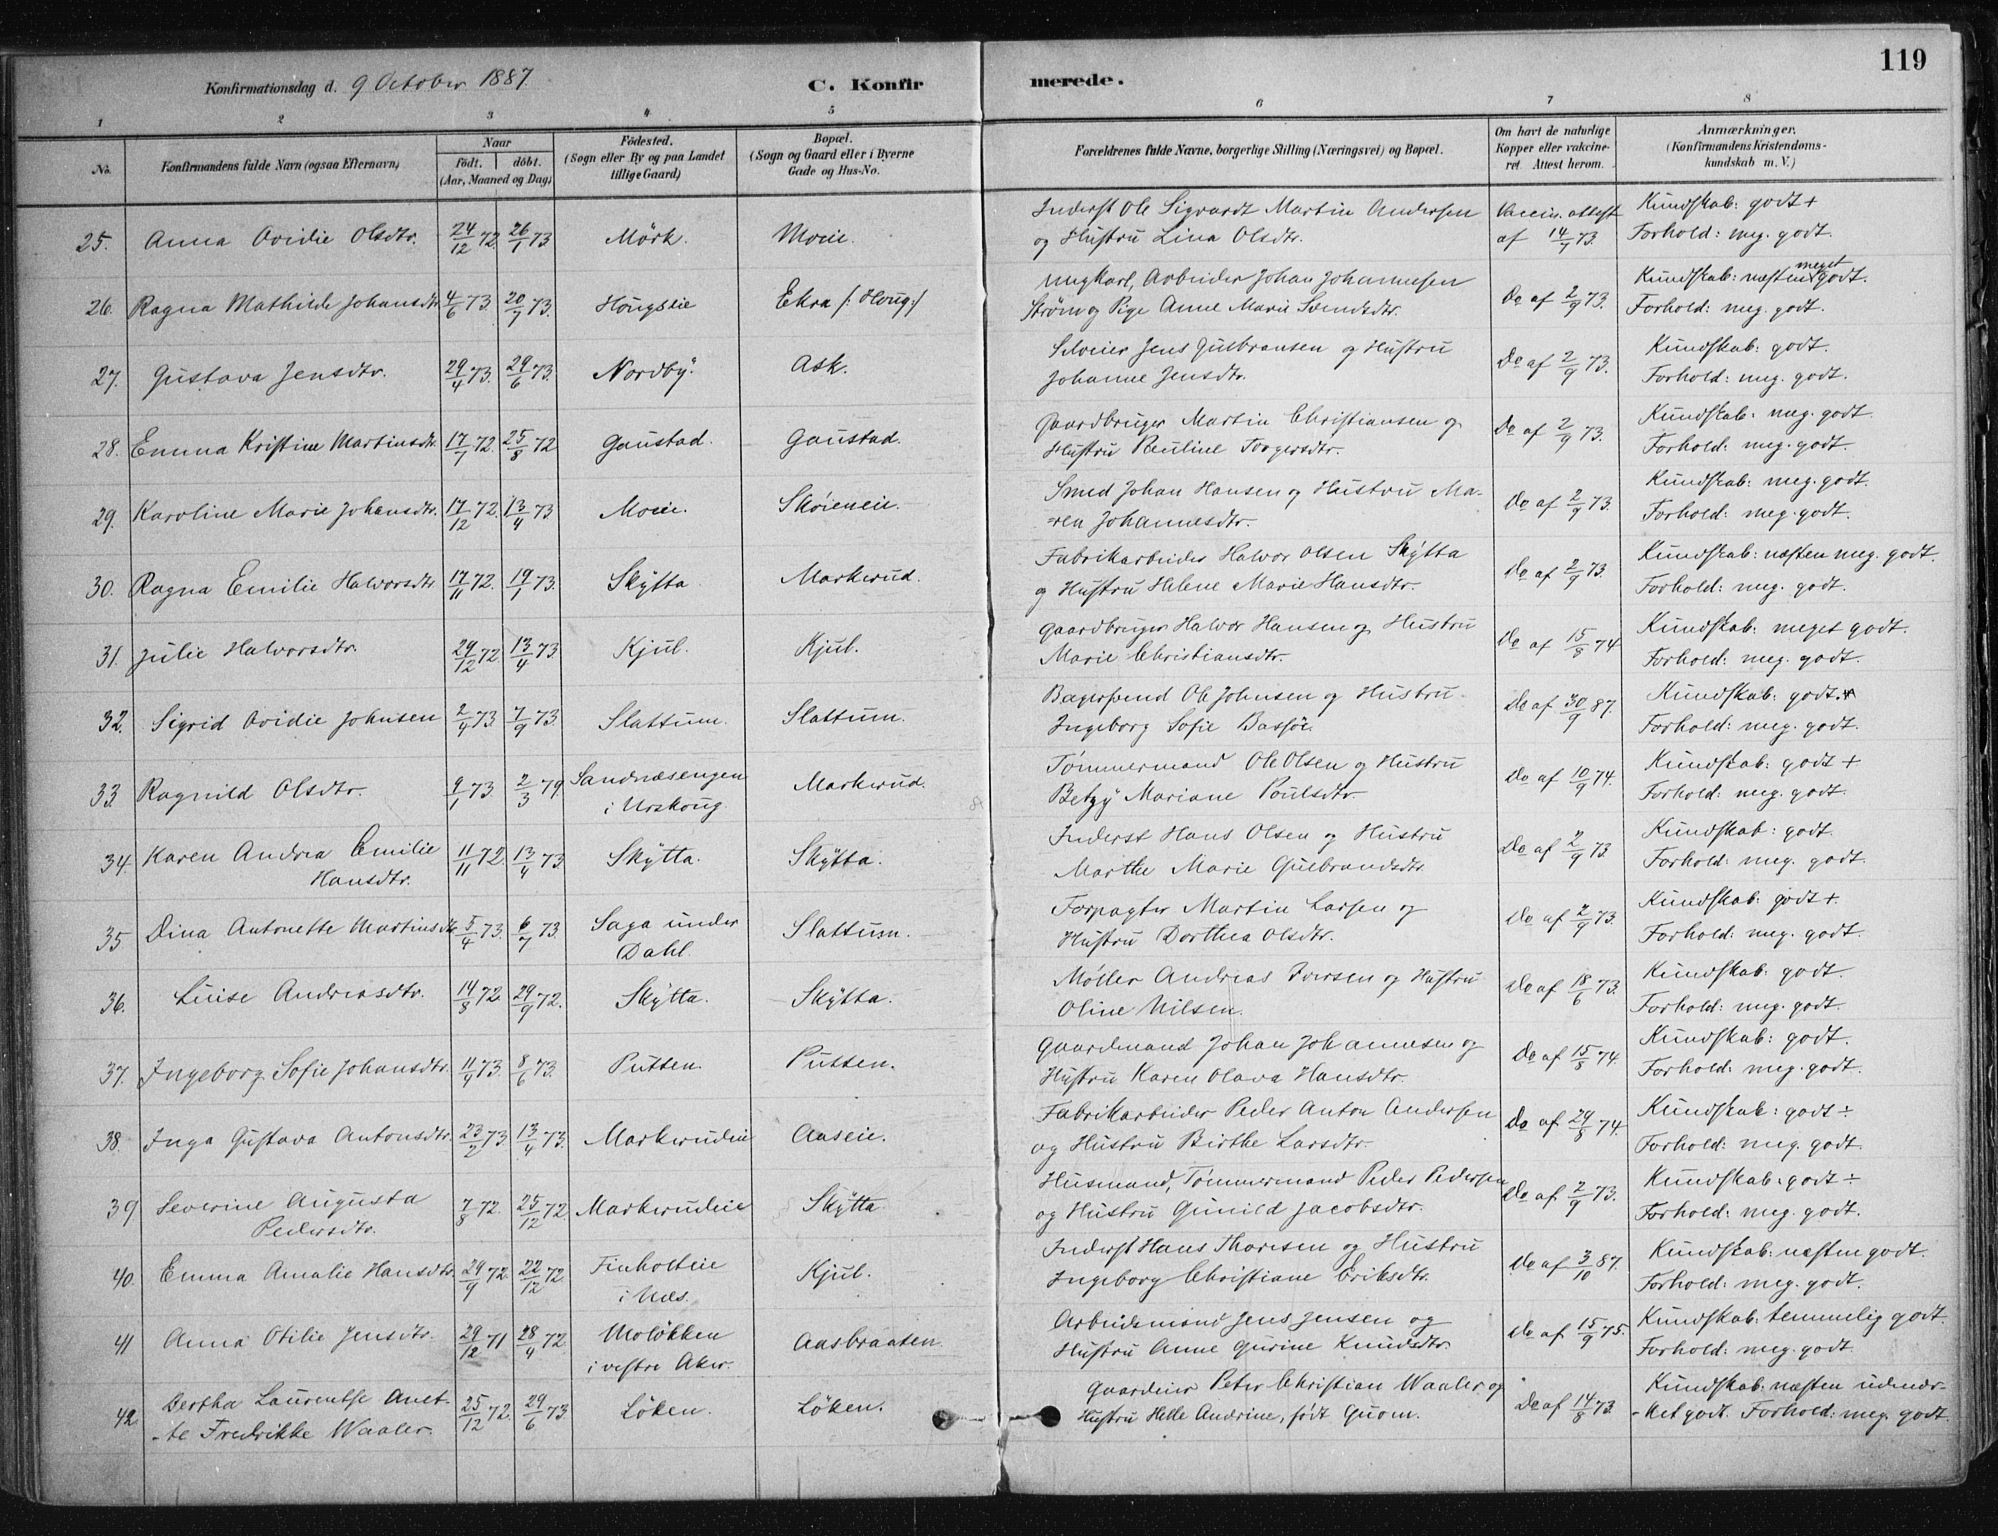 119
Konfirmationsdag d. 9 October 1887.
C. Konfirmerede.
1 2 3 4 5 6 7 8
No.
Konfirmandens fulde Navn (ogsaa Efternavn)
Naar
født. døbt.
(Aar, Maaned og Dag)
Fødested.
(Sogn eller By og paa Landet
tillige Gaard)
Bopæl.
(Sogn og Gaard eller i Byerne
Gade og Hus-No.
Forældrenes fulde Navne, borgerlige Stilling (Næringsvei) og Bopæl.
Om havt de naturlige
Kopper eller vakcine-
ret. Attest herom.
Anmærkninger.
(Konfirmandens Kristendoms-
kundskab m. V.)
25. Anna Ovidie Olsdtr. 24/12 72 26/1 73 Mörk. Moeie. Inderst Ole Sigvardt Martin Andersen Vaccin. attest Kundskab: godt +
og Hustru Lina Olsdtr. af 14/9 73. Forhold: meg. godt.
26. Ragna Mathilde Johansdtr. 4/6 73 20/7 73. Hougslie Ekra /: Houg:/ Ungkarl, Arbeider Johan Johannesen Do af 2/9 73. Kundskab: næsten meget godt.
Strøm og Pige Anne Marie Svendsdtr. Forhold: meg. godt.
27. Gustava Jensdtr. 29/4 73. 29/6 73. Nordby. Ask. Selveier Jens Gulbransen og Hustru Do af 2/9 73. Kundskab: godt.
Johanne Jensdtr. Forhold: meg. godt.
28. Emma Kristine Martinsdtr. 17/7 72. 25/8 72 Gaustad. Gaustad. Gaardbruger Martin Christiansen og Do af 2/9 73. Kundskab: meg. godt.
Hustru Pauline Torgersdtr. Forhold: meg. godt.
29. Karoline Marie Johansdtr. 17/12 72. 13/4 73 Moeie. Skøieneie. Smed Johan Hansen og Hustru Ma- Do af 2/9 73. Kundskab: meg. godt.
=ren Johannesdtr. Forhold: meg. godt.
30. Ragna Emilie Halvorsdtr 17/11 72. 19/1 73. Skÿtta. Markerud. Fabrikarbeider Halvor Olsen Skÿtta Do af 2/9 73. Kundskab: næsten meg. godt.
og Hustru Helene Marie Hansdtr. Forhold: meg. godt.
31. Julie Halvorsdtr. 29/12 72 13/4 73. Kjul. Kjul. Gaardbruger Halvor Hansen og Hustru Do af 15/8 74 Kundskab: meget godt.
Marie Christiansdtr. Forhold: meg. godt.
32. Sigrid Ovidie Johnsen 2/4 73. 7/9 73. Slattum. Slattum. Bagersvend Ole Johnsen og Hustru Do af 30/9 87. Kundskab: godt. +
Ingeborg Sofie Forhold: meg. godt.
33 Ragnild Olsdtr. 9/1 73. 2/3 79. Sandnæsengen Markerud. Tømmermand Ole Olsen og Hustru Do af 10/9 74. Kundskab: godt +
i Urskoug Betzÿ Mariane Poulsdtr. Forhold: meg. godt.
34. Karen Andrea Emilie 11/11 72 13/4 73. Skÿtta. Skÿtta. Inderst Hans Olsen og Hustru Do af 2/9 73. Kundskab: godt.
Hansdtr. Marthe Marie Gulbrandsdtr Forhold: meg. godt.
35 Dina Antonette Martinsdtr 5/4 73. 6/7 73. Saga under Slattum. Forpagter Martin Larsen og Do af 2/9 73. Kundskab: godt +.
Dahl. Hustru Dorthea Olsdtr. Forhold: meg. godt.
36. Luise Andreasdtr. 14/8 72. 29/9 72. Skÿtta. Skÿtta. Møller Andreas Iversen og Hustru Do af 18/6 73. Kundskab: godt.
Oline Nilsen. Forhold: meg. godt.
37. Ingeborg Sofie Johansdtr. 11/4 73. 8/6 73. Putten. Putten. Gaardmand Johan Johannesen og Do af 15/8 74 Kundskab: godt.
Hustru Karen Olava Hansdtr. Forhold: meg. godt.
38. Inga Gustava Antonsdtr. 23/2 73 13/4 73. Markerudeie Aaseie. Fabrikarbeider Peder Anton Andersen Do af 29/8 74. Kundskab: godt ÷
og Hustru Birthe Larsdtr. Forhold: meg. godt.
39 Severine Augusta 7/8 72. 25/12 72 Markerudeie Skÿtta Husmand, Tømmermand Peder Pedersen Do af 2/9 73. Kundskab: godt ÷
Pedersdtr. og Hustru Gunild Jacobsdtr. Forhold: meg. godt.
40. Emma Amalie Hansdtr. 29/9 72 22/12 72. Finholteie Kjul. Inderst Hans Thoresen og Hustru Do af 3/10 87. Kundskab: næsten godt.
i Næs. Ingeborg Christiane Eriksdtr. Forhold: meg. godt.
41 Anna Otilie Jensdtr. 29/12 71 28/4 72. Moløkken Aasbraaten. Arbeidsmand Jens Jensen og Do af 15/9 75. Kundskab: temmelig godt.
i vestre Aker. Hustru Anne Gurine Knudsdtr. Forhold: meg. godt.
42 Bertha Laurentse Anet- 25/12 72. 29/6 73. Løken. Løken. Gaardeier Peter Christian Waaler og Do af 14/8 73. Kundskab: næsten udmær-
-te Fredrikke Waaler. Hustru Helle Andrine, født Quom. -ket godt. Forhold: meg. godt.